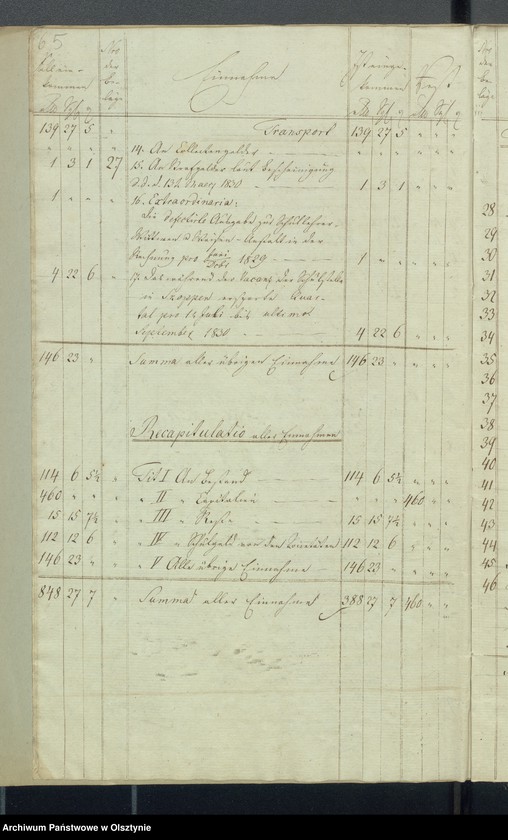 65
Soll ein-
kommen
No
der
Be-
läge
Einnahme
Ist einge-
kommen
Rest
139 27 5 Transport 139 27 5
14. An Collectengelder
1 3 1 27 15. An Strafgelder laut Bescheinigung
d. d. 13t Maerz 1830 1 3 1
1 16. Extraordinaria:
Die defectirte Ausgabe zur Schullehrer-
Wittwen u Waisen-Anstalt in der
Rechnung pro 1829 1
4 22 6 17. Das während der Vacanz der Schulstelle
in ersparte Quar-
tal pro 1t Juli bis ultimo
September 1830 4 22 6
146 23 Summa aller übrigen Einnahme 146 23
Recapitulatio aller Einnahmen
114 6 5½ Tit I An Bestand 114 6 5½
460 " II " Capitalien 460
15 15 7½ " III " Reste 15 15 7½
112 12 6 " IV " Schulgeld von den 112 12 6
146 23 " V Alle übrige Einnahme 146 23
848 27 7 Summa aller Einnahme 388 27 7 460
No
der
Be-
läge
28
29
30
31
32
33
34
35
36
37
38
39
40
41
42
43
44
45
46
Archiwum Państwowe w Olsztynie